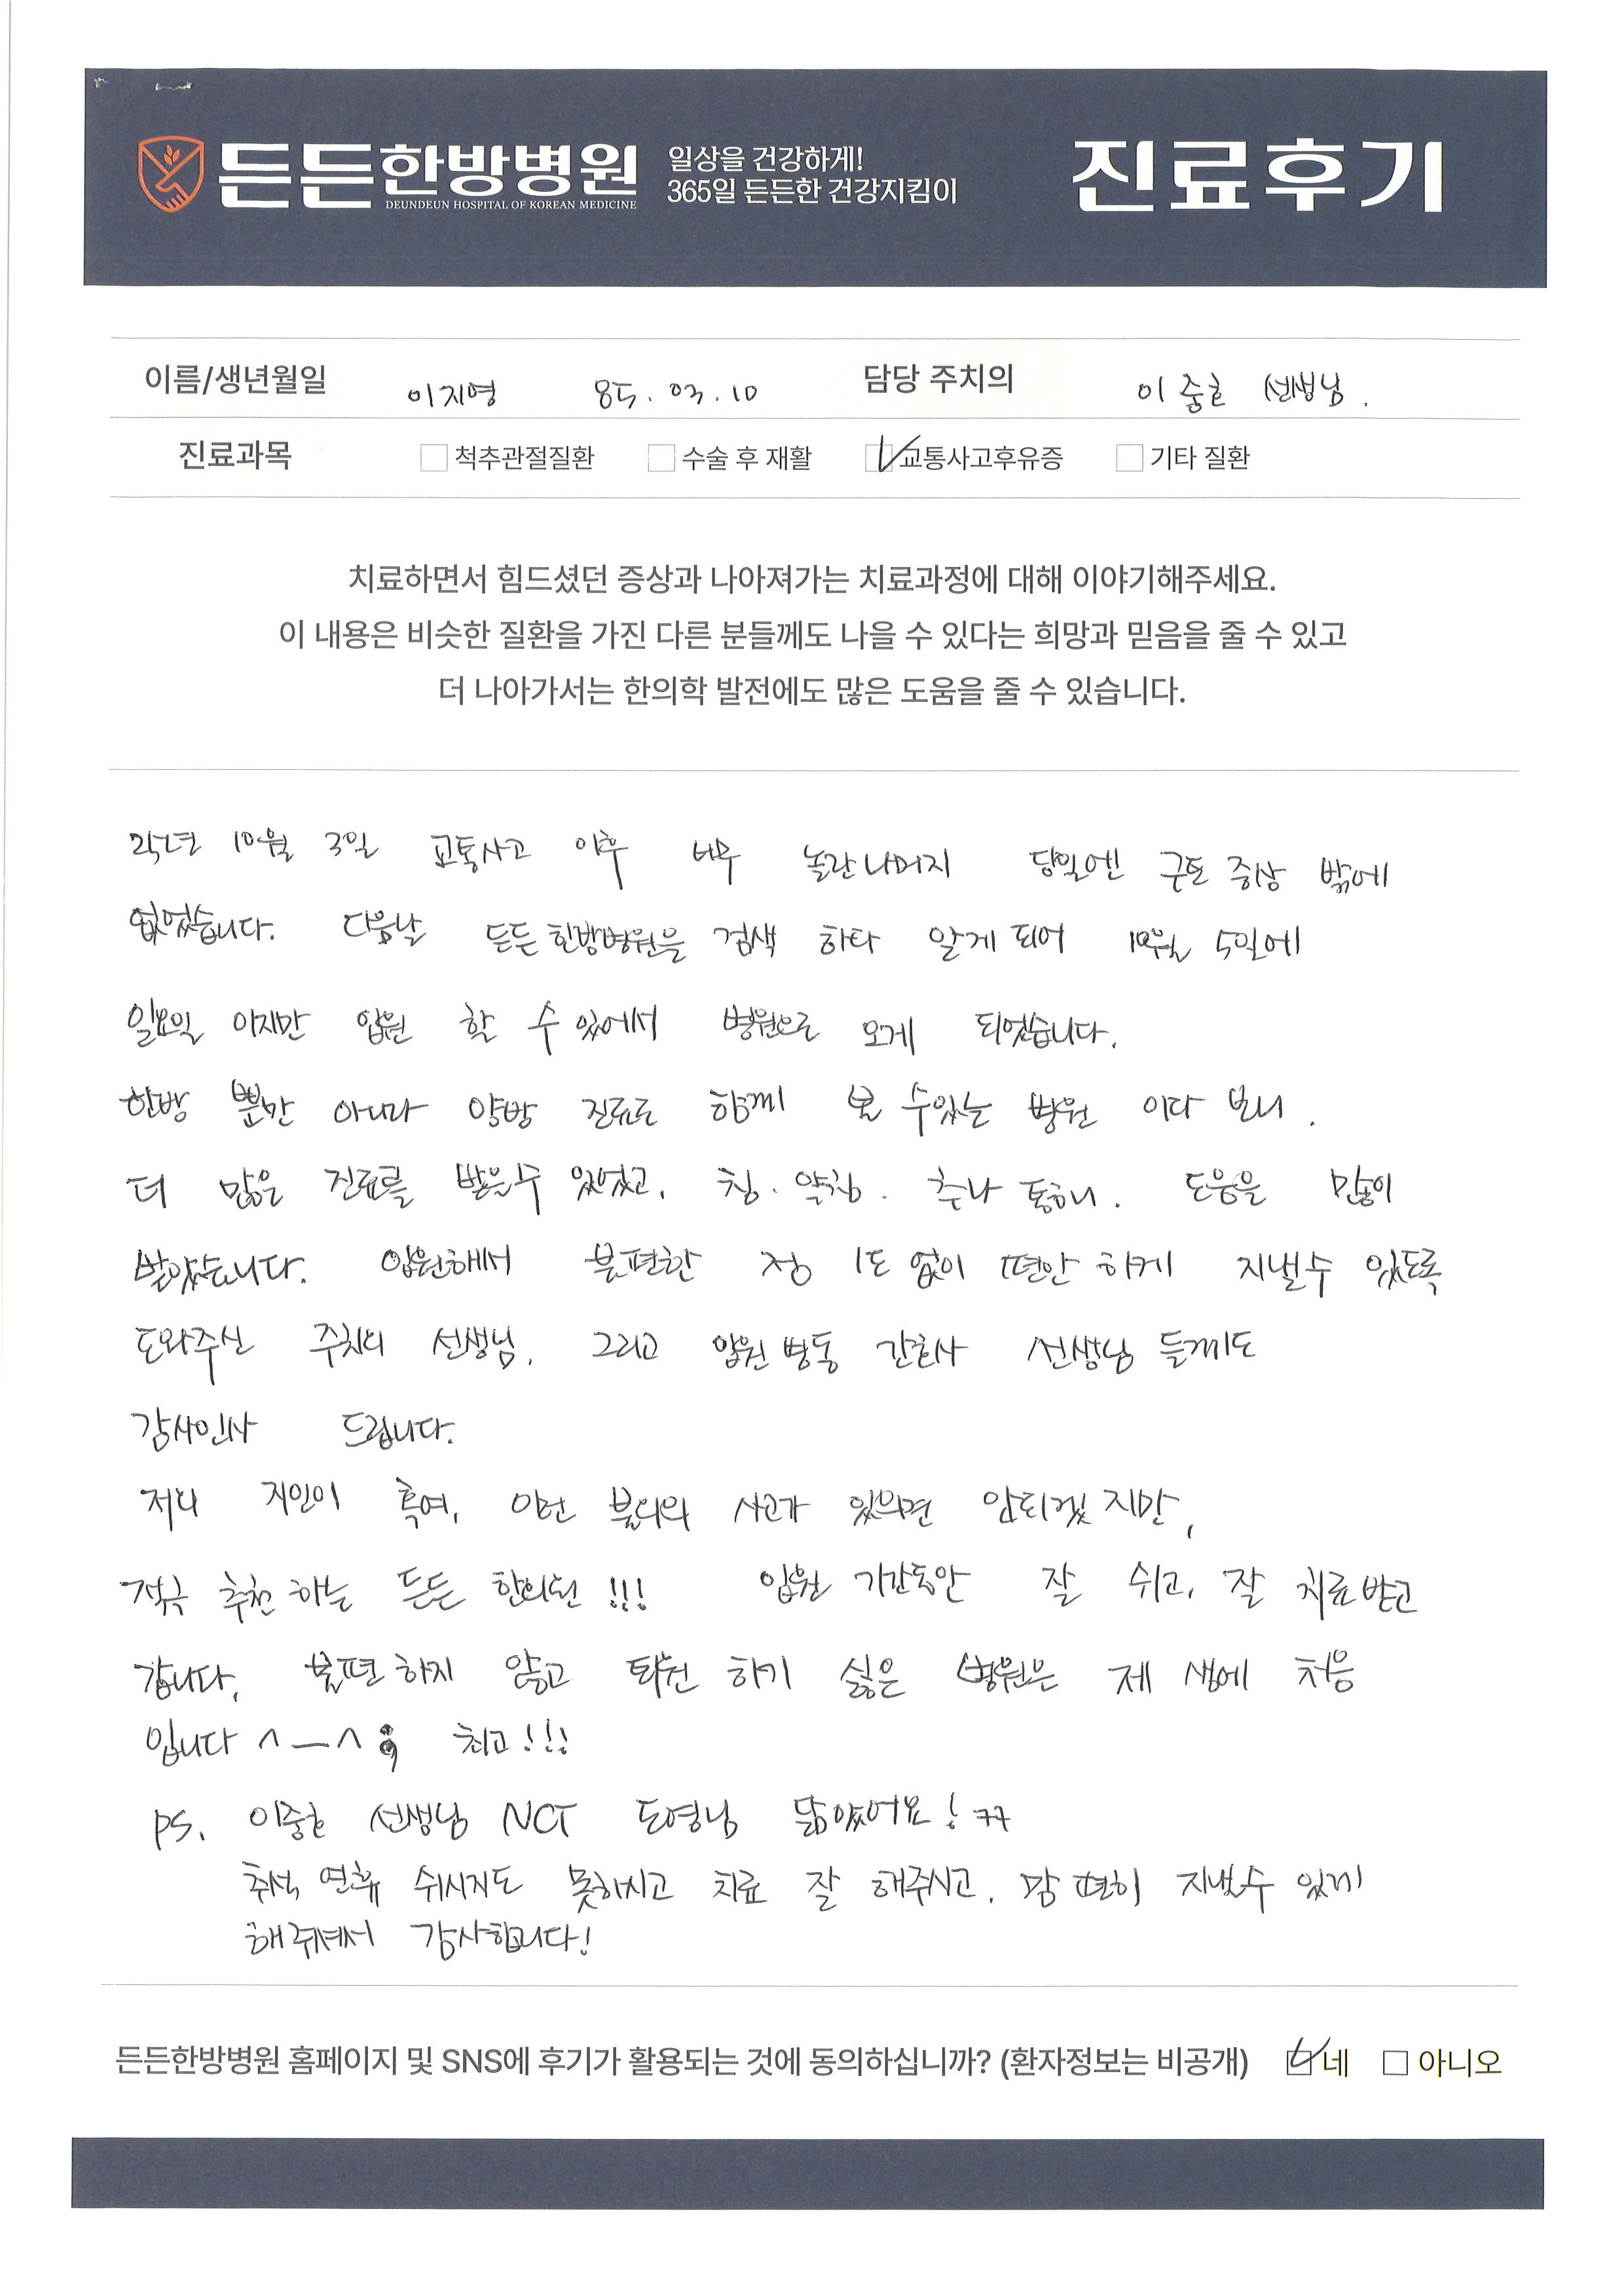 든든한방병원
DEUNDEUN HOSPITAL OF KOREAN MEDICINE
일상을 건강하게!
365일 든든한 건강지킴이
진료후기
이름/생년월일 이지영 85. 03. 10 담당 주치의 이중호 선생님.
진료과목 척추관절질환 수술 후 재활 교통사고후유증 기타 질환
치료하면서 힘드셨던 증상과 나아져가는 치료과정에 대해 이야기해주세요.
이 내용은 비슷한 질환을 가진 다른 분들께도 나을 수 있다는 희망과 믿음을 줄 수 있고
더 나아가서는 한의학 발전에도 많은 도움을 줄 수 있습니다.
25년 10월 3일 교통사고 이후 너무 놀란나머지 당일엔 근톤 증상 밖에
없었습니다. 다음날 든든한방병원을 검색 하다 알게 되어 10월 5일에
일요일 이지만 입원 할 수 있어서 병원으로 오게 되었습니다.
한방 뿐만 아니라 양방 진료도 함께 볼 수있는 병원 이다 보니.
더 많은 진료를 받을수 있었고, 침. 약침. 추나 통하니. 도움을 많이
받았습니다. 입원해서 불편한 점 1도 없이 편안 하게 지낼수 있도록
도와주신 주치의 선생님, 그리고 입원 병동 간호사 선생님 들께도
감사인사 드립니다.
저의 지인이 혹여, 이런 불의의 사고가 있으면 안되겠지만,
적극 추천 하는 든든 한의원 !!! 입원 기간동안 잘 쉬고, 잘 치료받고
갑니다. 불편 하지 않고 퇴원 하기 싫은 병원은 제 생에 처음
입니다 ^—^; 최고!!!
PS. 이중호 선생님 NCT 도영님 닮았어요! ㅋㅋ
추석 연휴 쉬시지도 못하시고 치료 잘 해주시고, 맘 편히 지낼수 있게
해주셔서 감사합니다!
든든한방병원 홈페이지 및 SNS에 후기가 활용되는 것에 동의하십니까? (환자정보는 비공개) 네 아니오